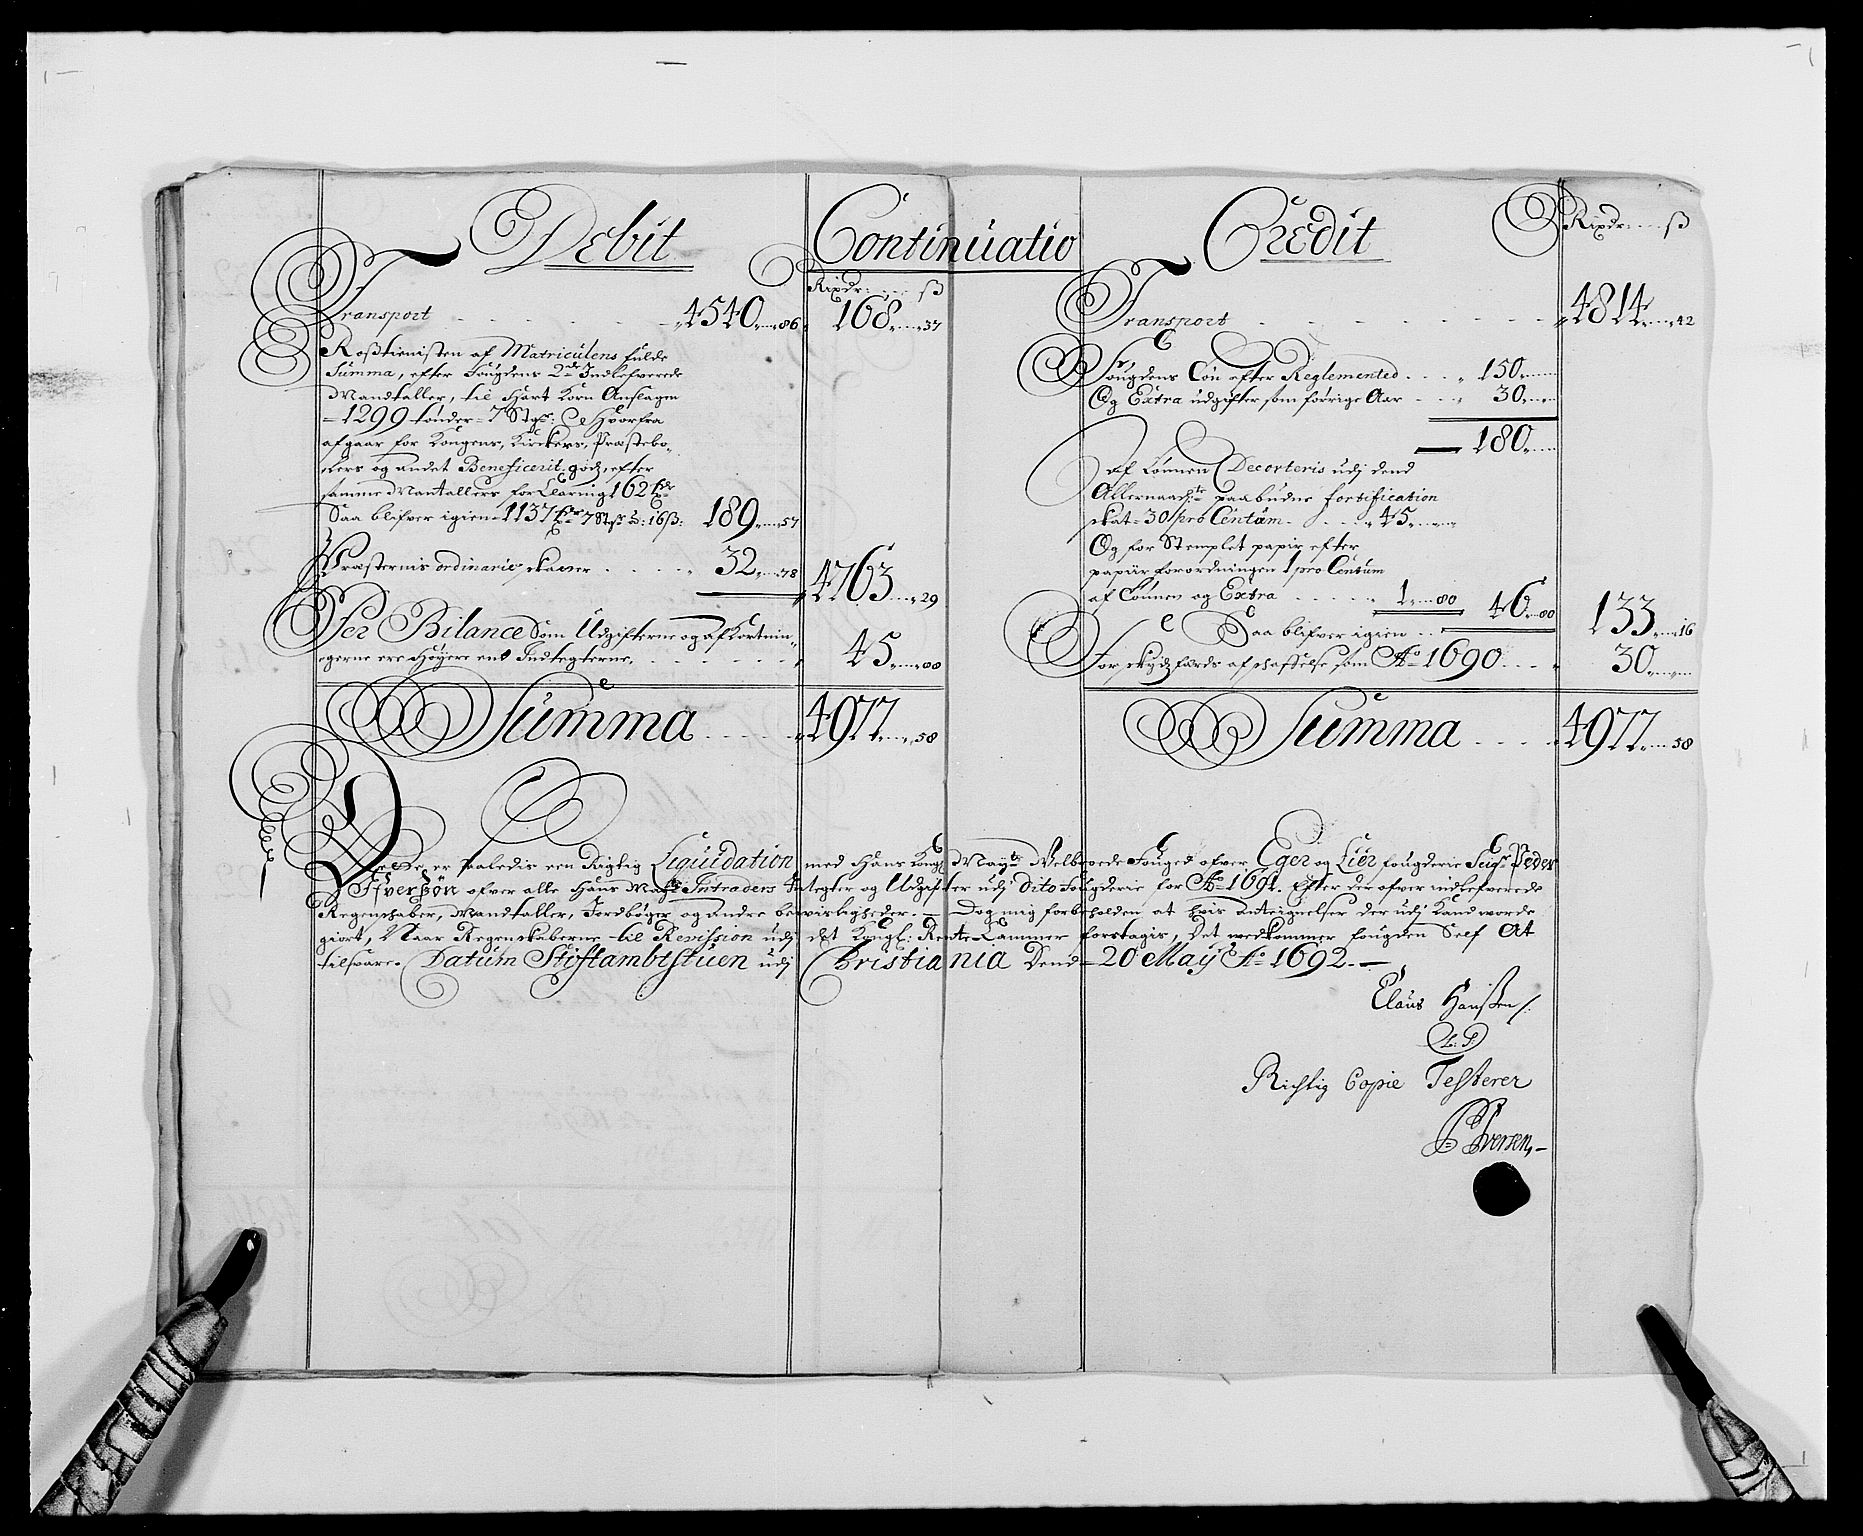 Debit Continuatio Credit
Rixdr: ß
Rixdr: ß
Transport 4540 86 168 37
Roßtienisten af Matriculens fulde
Summa, efter Fougdens 2de Indlefverede
Mandtaller, til Hart Korn Anslagen
1299 tönder 7 Hvorfra
afgaar for Kongens, Kirckers, Præstebo-
lers og andet Beneficerit godz, efter
samme Mantallers forClaring 162
Saa blifver igien 1137 7 16ß: 189 57
Præsternis ordinarie skatter 32 78 4763 29
Per Bilance Som Udgifterne og afKortnin-
gerne ere Høyere end Indtegterne 45 00
Summa 4977 58
Transport 4814 42
Fougdens Lön efter Reglemented 150
Og Extra udgifter som forrige Aar 30
180
af Lönnen Decorteris udj dend
Allernaadigste paabudne fortification
skat 30 pro Centum 45
Og for Stemplet papir efter
papiir forordningen 1 pro Centum
af Lönnen og Extra 1 80 46 80
Saa blifver igien 133 16
For skydzfærds afschaffelse som Ao 1690 30
Summa 4977 58
er saaledis een Rigtig Liqvidation med Hans Kongl: Mayts Velbrede Fouged ofver Eger og Lier fougderie Seigr Peder
Ifverßön ofver alle Hans Mayts Intraders Indtegter og Udgifter udj dito Fougderie for Ao 1691. Efter der ofver indlefverede
Regenskaber, Mandtaller, Jordböger og andre bevisligheder. Dog mig forbeholden at hvis Anteignelser der udj Kand worde
giort, Naar Regenskaberne til Revission udj det Kongl: Rente-Cammer foretagis, det vedkommer fougden Self At
tilsvare. Datum Stiftambtstuen udj Christiania Dend 20 May Ao 1692.
Claus Hanßen
L: S:
Richtig Copie Testerer
P Iversen